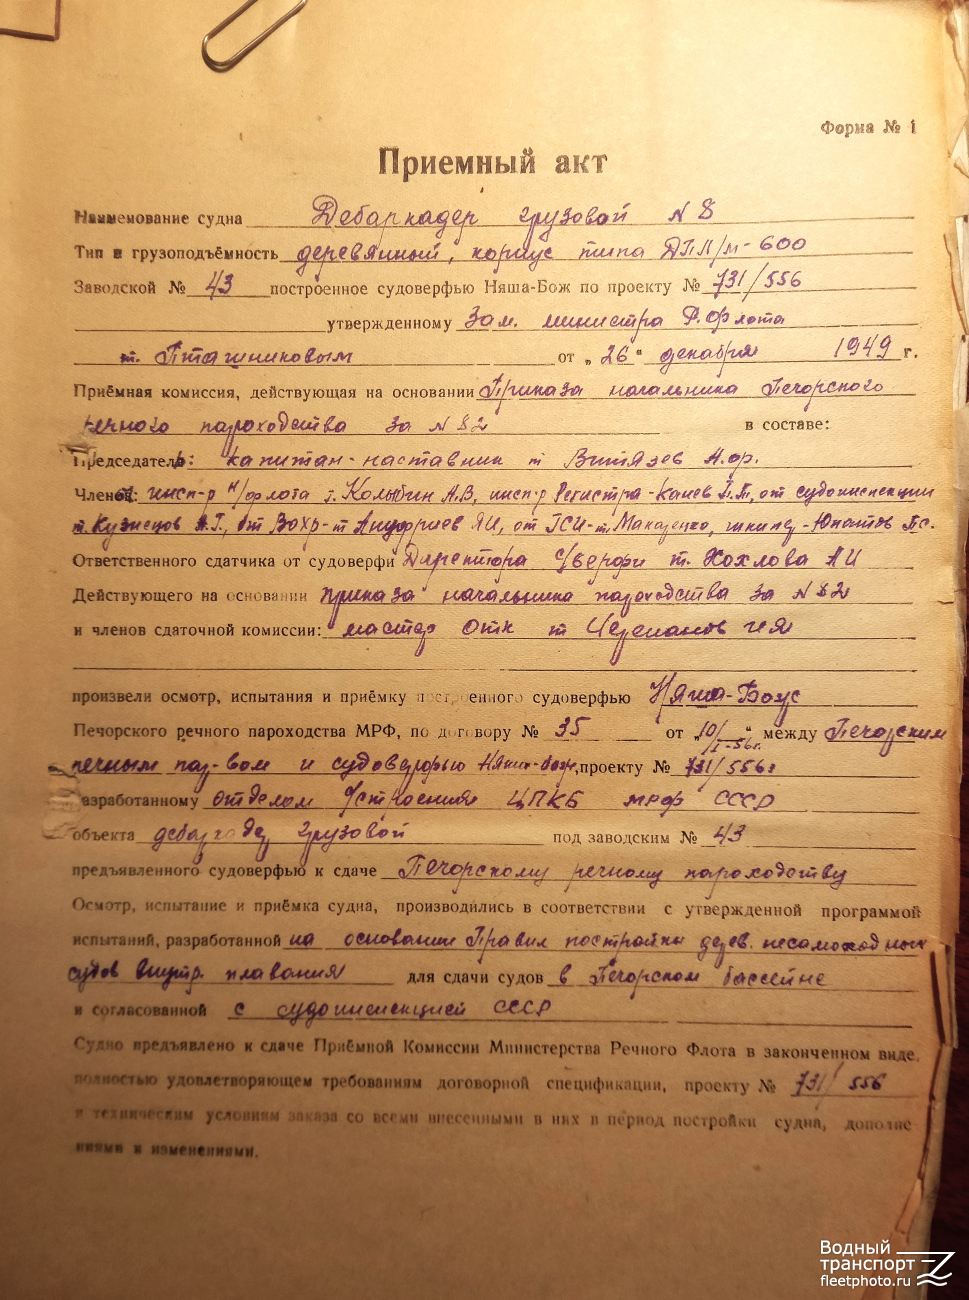 Форма № 1
Приемный акт
Наименование судна Дебаркадер грузовой N 8
Тип и грузоподъёмность деревянный, корпус типа ДПЛ/м-600
Заводской № 43 построенное судоверфью Няша-Бож по проекту № 731/556
утвержденному Зам. министра Р. Флота
т. Пташниковым от „26" декабря 1949 г.
Приёмная комиссия, действующая на основании Приказа начальника Печорского
речного пароходства за N 82 в составе:
Председатель: капитан-наставник т Витязев Н.Ф.
Членов: инсп-р М/флота т. Колыбин А.В, инсп-р Регистра-Канев П.П, от судоинспекции
т. Кузнецов А.Г, от Вохр-т Ануфриев ЯИ, от ГСИ-т. Макаренко, шкипер-Юпатов
Ответственного сдатчика от судоверфи Директора С/верфи т. Хохлова АИ
Действующего на основании приказа начальника пароходства за N 82
и членов сдаточной комиссии: мастер Отк т Черепанов ИЯ
произвели осмотр, испытания и приёмку построенного судоверфью Няша-Бож
Печорского речного пароходства МРФ, по договору № 35 от „10/I-56г." между Печорским
речным пар-вом и судоверфью Няша-Бож, проекту № 731/556г
разработанному отделом ЦПКБ МРФ СССР
объекта дебаркадер грузовой под заводским № 43
предъявленного судоверфью к сдаче Печорскому речному пароходству
Осмотр, испытание и приёмка судна, производились в соответствии с утвержденной программой
испытаний, разработанной на основании Правил постройки дерев. несамоходных
судов внутр. плавания для сдачи судов в Печорском бассейне
и согласованной с судоинспекцией СССР
Судно предъявлено к сдаче Приёмной Комиссии Министерства Речного Флота в законченном виде,
полностью удовлетворяющем требованиям договорной спецификации, проекту № 731/556
и техническим условиям заказа со всеми внесенными в них в период постройки судна, дополне
ниями и изменениями.
Водный
транспорт
fleetphoto.ru